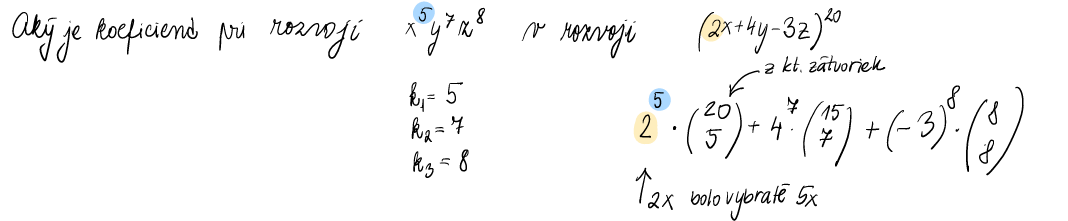 Aký je koeficiend pri rozvoji x⁵y⁷z⁸ v rozvoji (2x+4y-3z)²⁰
z kt. zátvoriek
k₁ = 5
k₂ = 7
k₃ = 8
2⁵ · (20 5) + 4⁷ · (15 7) + (-3)⁸ · (8 8)
2x bolo vybraté 5x